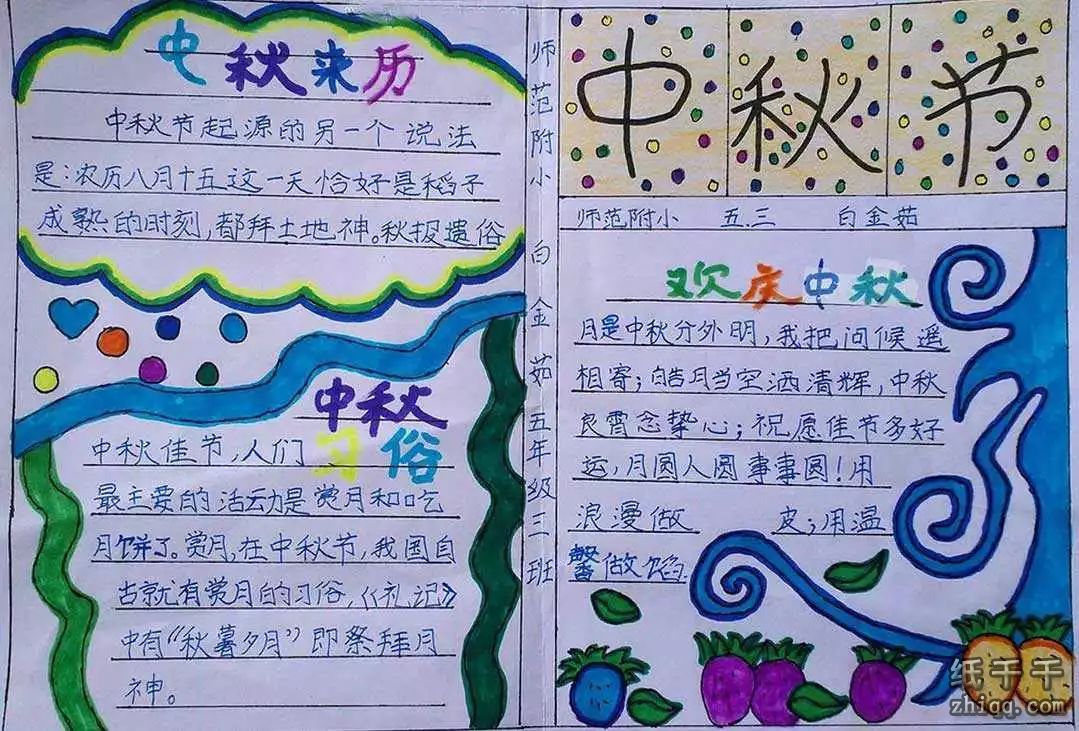 中秋来历
中秋节起源的另一个说法
是:农历八月十五这一天恰好是稻子
成熟的时刻,都拜土地神。秋报遗俗
中秋
习俗
中秋佳节,人们
最主要的活动是赏月和吃
月饼了。赏月,在中秋节,我国自
古就有赏月的习俗,《礼记》
中有“秋暮夕月”即祭拜月
神。
师范附小 白金茹 五年级三班
中秋节
师范附小 五.三 白金茹
欢庆中秋
月是中秋分外明,我把问候遥
相寄;皓月当空洒清辉,中秋
良宵念挚心;祝愿佳节多好
运,月圆人圆事事圆!用
浪漫做 皮;用温
馨做馅
纸千千
zhiqq.com